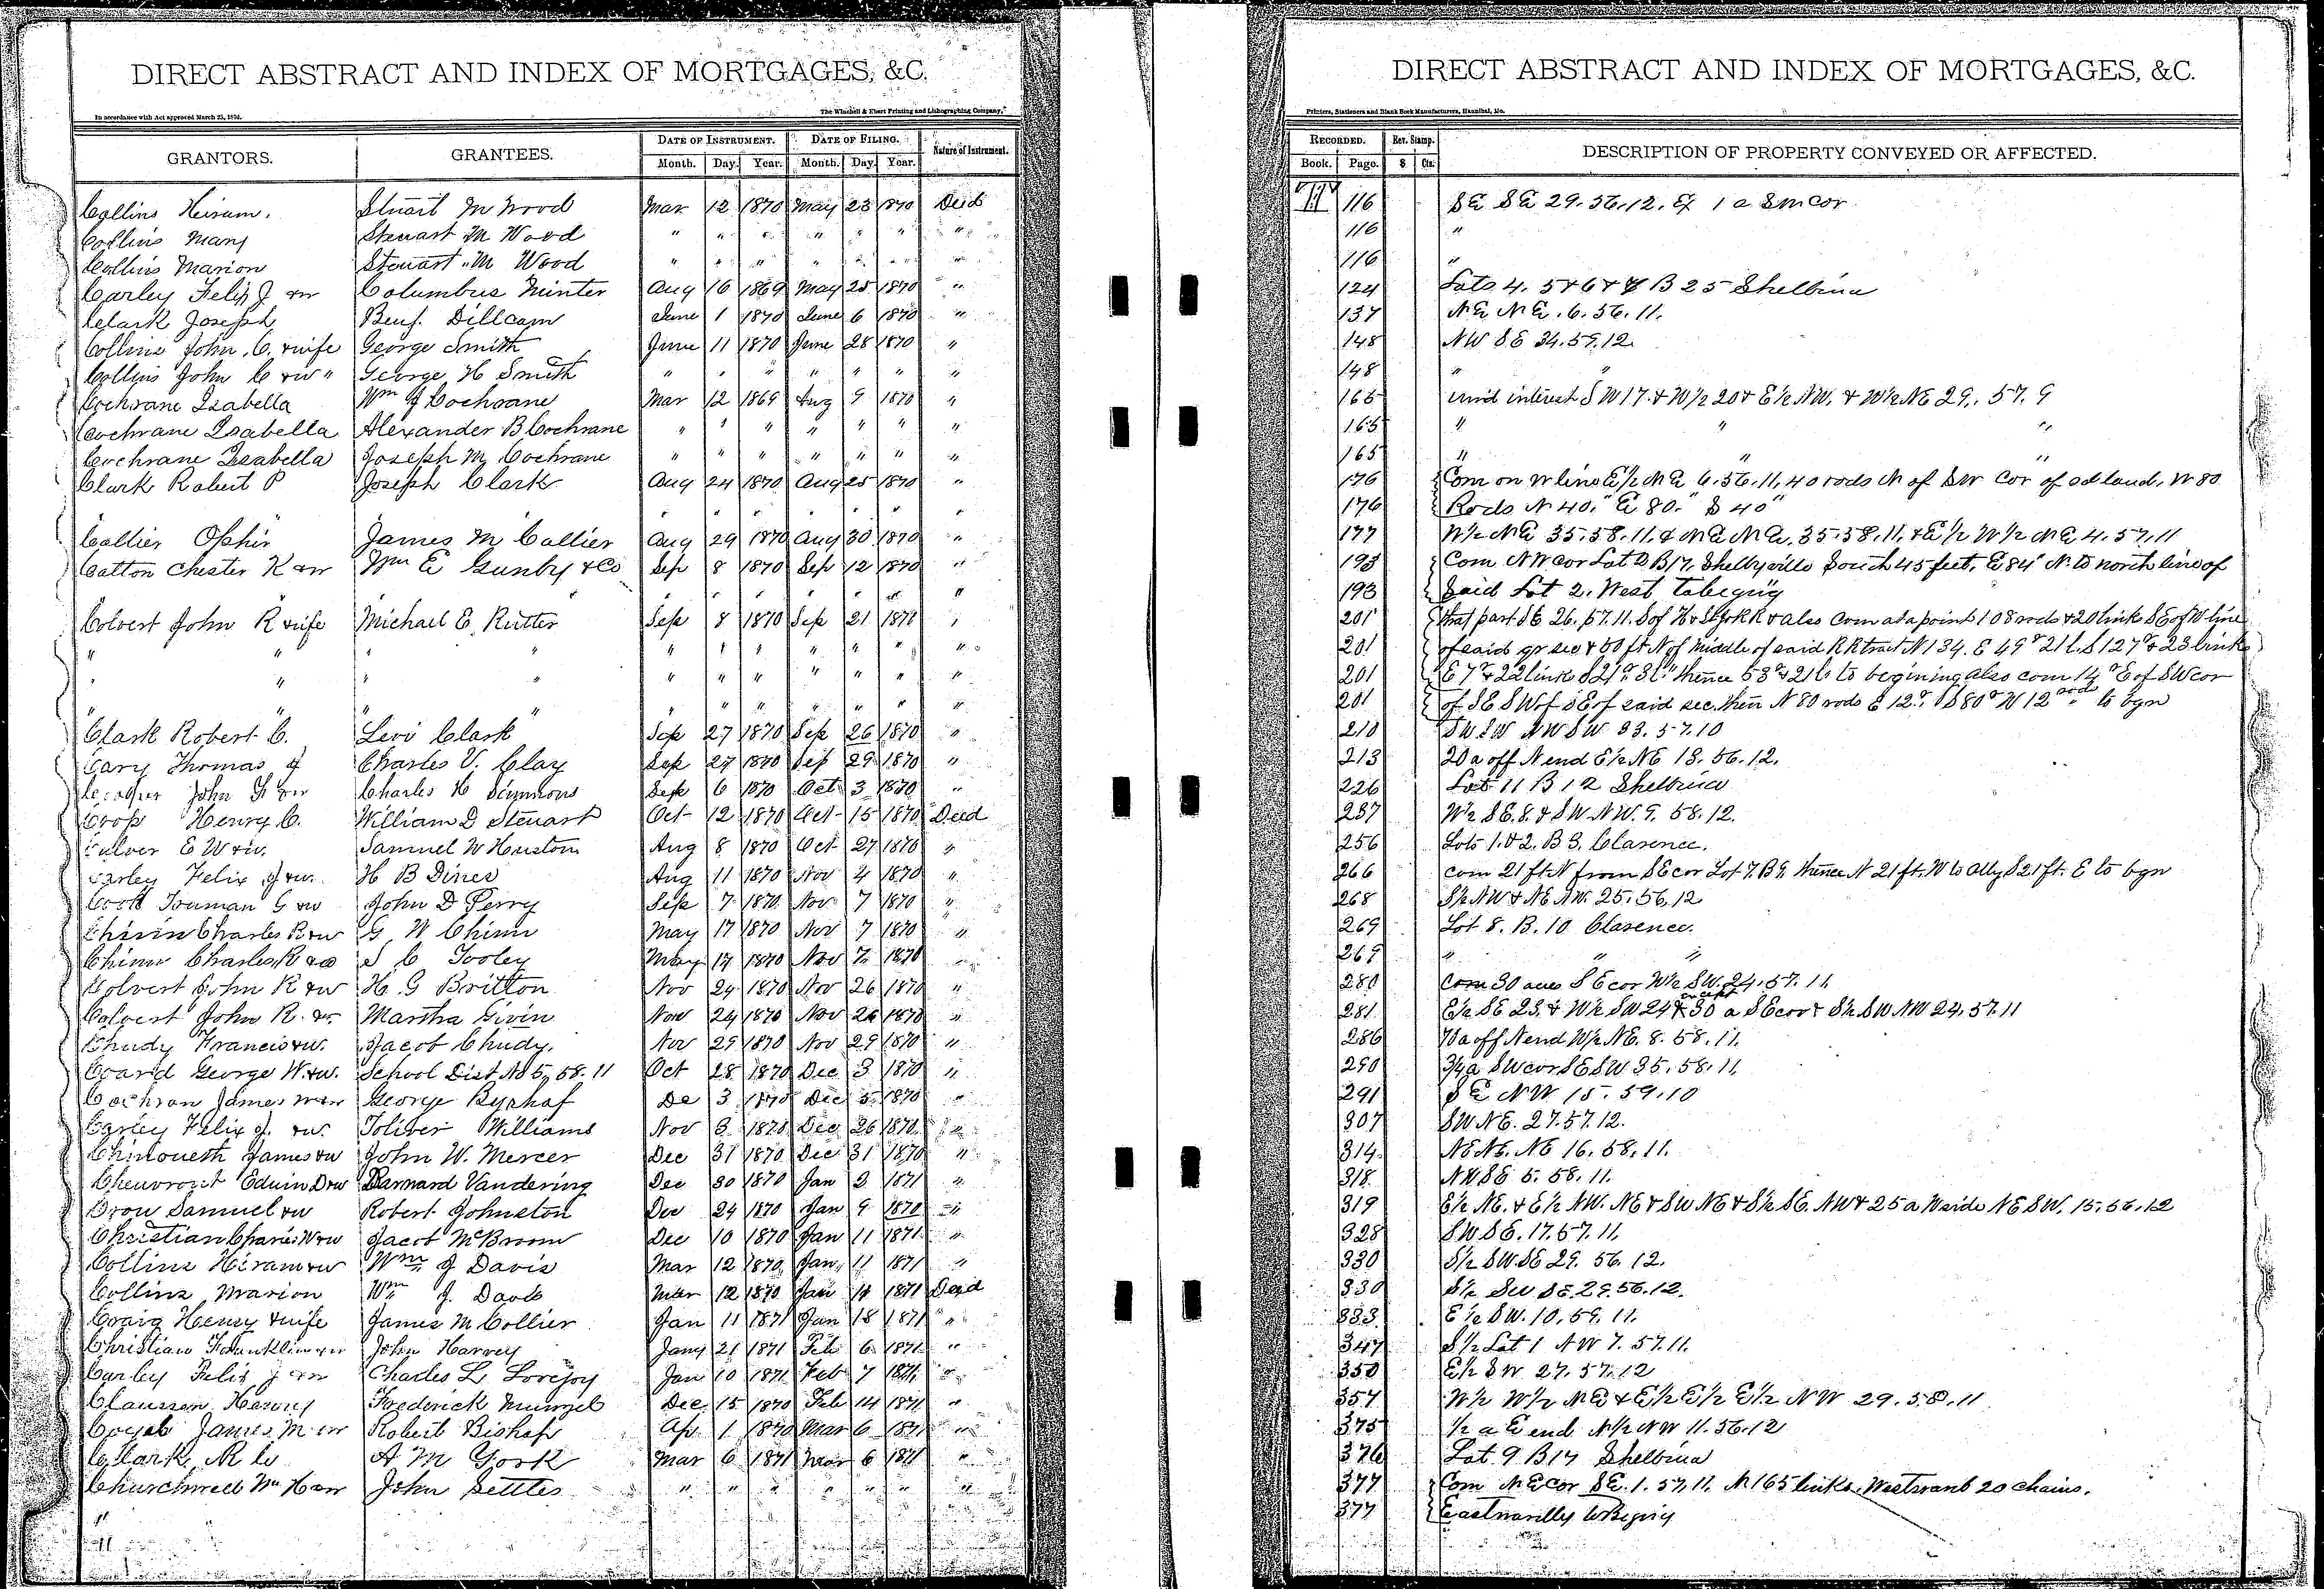 DIRECT ABSTRACT AND INDEX OF MORTGAGES, &C.
In accordance with Act approved March 25, 1874.
The Winchell & Ebert Printing and Lithographing Company,
GRANTORS. GRANTEES. DATE OF INSTRUMENT. DATE OF FILING. Nature of Instrument.
Month. Day. Year. Month. Day. Year.
Collins Hiram. Stuart M Wood Mar 12 1870 May 23 1870 Deed
Collins Mary Steuart M Wood " " " " " " "
Collins Marion Steuart M Wood " " " " " " "
Carley Felix J &w Columbus Minter Aug 16 1869 May 25 1870 "
Clark Joseph Benj. Dillcam June 1 1870 June 6 1870 "
Collins John C. & wife George Smith June 11 1870 June 28 1870 "
Collins John C &w " George H Smith " " " " " " "
Cochrane Isabella Wm J Cochrane Mar 12 1869 Aug 9 1870 "
Cochrane Isabella Alexander B Cochrane " " " " " " "
Cochrane Isabella Joseph M Cochrane " " " " " " "
Clark Robert P Joseph Clark Aug 24 1870 Aug 25 1870 "
Collier Ophir James M Collier Aug 29 1870 Aug 30 1870 "
Cotton Chester K &w Wm E Gunby & Co Sep 8 1870 Sep 12 1870 "
Colvert John R & wife Michael E. Rutter Sep 8 1870 Sep 21 1870 "
" " " " " " " " " "
" " " " " " " " " "
" " " " " " " " " "
Clark Robert C. Levi Clark Sep 27 1870 Sep 26 1870 "
Cary Thomas J Charles V. Clay Sep 27 1870 Sep 29 1870 "
John F &w Charles H Simmons Sep 6 1870 Oct 3 1870 "
Crop Henry C. William D Steuart Oct 12 1870 Oct 15 1870 Deed
Culver E W &w. Samuel W Houston Aug 8 1870 Oct 27 1870 "
Carley Felix J &w. H B Dines Aug 11 1870 Nov 4 1870 "
Cook Truman G &w John D Perry Sep 7 1870 Nov 7 1870 "
Chinn Charles R &w G W Chinn May 17 1870 Nov 7 1870 "
Chinn Charles R &w S C Tooley May 17 1870 Nov 7 1870 "
Colvert John R &w H. G Britton Nov 24 1870 Nov 26 1870 "
Calvert John R. &w. Martha Givin Nov 24 1870 Nov 26 1870 "
Chudy Francis &w. Jacob Chudy. Nov 29 1870 Nov 29 1870 "
Coard George W. &w. School Dist No 5, 58. 11 Oct 28 1870 Dec 3 1870 "
Cochran James M &w George Byrhaf De 3 1870 Dec 5 1870 "
Carley Felix J. &w. Toliver Williams Nov 3 1870 Dec 26 1870 "
Chinoueth James &w John W. Mercer Dec 31 1870 Dec 31 1870 "
Cheuvront Eduin D &w Barnard Vandering Dec 30 1870 Jan 2 1871 "
Crow Samuel &w Robert Johnston Dec 24 1870 Jan 9 1870 "
Christian Charles W &w Jacob McBroom Dec 10 1870 Jan 11 1871 "
Collins Hiram &w Wm J Davis Mar 12 1870 Jan 11 1871 "
Collins Marion Wm J. Davis Mar 12 1870 Jan 11 1871 Deed
Craig Henry & wife James M Collier Jan 11 1871 Jan 18 1871 "
Christian Franklin &w John Harvey Jany 21 1871 Feb 6 1871 "
Carley Felix J &w Charles L Lovejoy Jan 10 1871 Feb 7 1871 "
Claussen Harvey Frederick Dec 15 1870 Feb 14 1871 "
James M &w Robert Bishop Ap 1 1870 Mar 6 1871 "
Clark, R C A M York Mar 6 1871 Mar 6 1871 "
Churchwell Wm H &w John Settles " " " " " " "
"
"
DIRECT ABSTRACT AND INDEX OF MORTGAGES, &C.
Printers, Stationers and Blank Book Manufacturers, Hannibal, Mo.
RECORDED. Rev. Stamp. DESCRIPTION OF PROPERTY CONVEYED OR AFFECTED.
Book. Page. $ Cts.
116 SE SE 29. 56. 12. Ex 1 a SW cor
116 "
116 "
124 Lots 4. 5 & 6 & 7 B 25 Shelbina
137 NE NE. 6. 56. 11.
148 NW SE 34. 59. 12.
148 " "
165 und interest S W 17. & W 1/2 20 & E 1/2 NW. & W 1/2 NE 29. 57. 9
165 " " "
165 " " "
176 Com on W line E 1/2 NE 6. 56. 11, 40 rods N of SW Cor of sd land, W 80
176 Rods N 40. " E 80. " S 40 "
177 W 1/2 NE 35. 58. 11. & NE NE. 35. 58. 11. & E 1/2 W 1/2 NE 4. 57. 11
193 Com NW cor Lot 2 B 17, Shelbyville South 45 feet, E 84 " N. to north line of
193 Said Lot 2. West to beging
201 that part SE 26. 57. 11. S of H & St Jo R R & also com at a point 108 rods & 20 links SE of W line
201 of said qr sec & 50 ft N of middle of said RR tract N 134. E 49 r 21 l. S 127 r & 23 links
201 E 7 r & 22 links S 21 r 3 l. " thence 53 r & 21 l. to begining also com 14 r E of SW cor
201 of SE SW of SE of said sec. then N 80 rods E 12 r. S 80 r W 12 rods to bgn
210 SW SW NW SW 33. 57. 10
213 20 a off N end E 1/2 NE 13. 56. 12.
226 Lot 11 B 12 Shelbina
237 W 1/2 SE. 8. & SW. NW. 9. 58. 12.
256 Lots 1. & 2. B 3. Clarence.
266 com 21 ft N from SE cor Lot 7. B 9. thence N 21 ft. W to Ally S 21 ft. E to bgn
268 S 1/2 NW & NE NW. 25. 56. 12
269 Lot 8. B. 10 Clarence.
269 " " "
280 Com 30 acres SE cor W 1/2 SW. 24. 57. 11.
281 E 1/2 SE 23. & W 1/2 SW 24 & except 30 a SE cor & S 1/2 SW NW 24. 57. 11
286 70 a off N end W 1/2 NE. 8. 58. 11.
290 3/4 a SW cor SE SW 35. 58. 11.
291 SE NW 15. 59. 10
307 SW NE. 27. 57. 12.
314 NE NE. NE 16. 58. 11.
318 NW SE 5. 58. 11.
319 E 1/2 NE. & E 1/2 NW. NE & SW NE & S 1/2 SE. NW & 25 a W side NE SW. 15. 56. 12
328 SW SE. 17. 57. 11.
330 S 1/2 SW. SE 29. 56. 12.
330 S 1/2 SW SE. 29. 56. 12.
333 E 1/2 SW. 10. 59. 11.
347 S 1/2 Lot 1 NW 7. 57. 11.
350 E 1/2 SW 27. 57. 12
357 W 1/2 W 1/2 NE & E 1/2 E 1/2 E 1/2 NW 29. 58. 11
375 1/2 a E end N 1/2 NW 11. 56. 12
376 Lot 9 B 17 Shelbina
377 Com NE cor SE. 1. 57. 11. N 165 links. Westward 20 chains.
377 Eastwardly to Beging